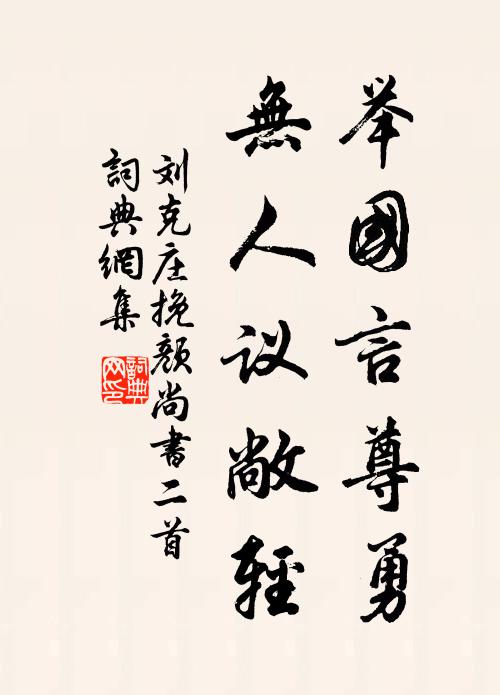 举國言尊勇
無人议敞轻
刘克庄挽颜尚書二首
詞典網集
詞典網印